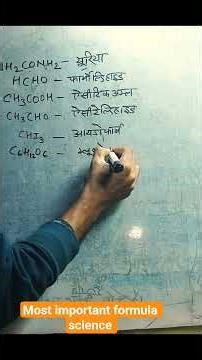 NH2CONH2 - यूरिया
HCHO - फार्मेल्डिहाइड
CH3COOH - ऐसीटिक अम्ल
CH3CHO - ऐसीटेल्डिहाइड
CHI3 - आयडोफार्म
C6H12O6 -
Most important formula
science